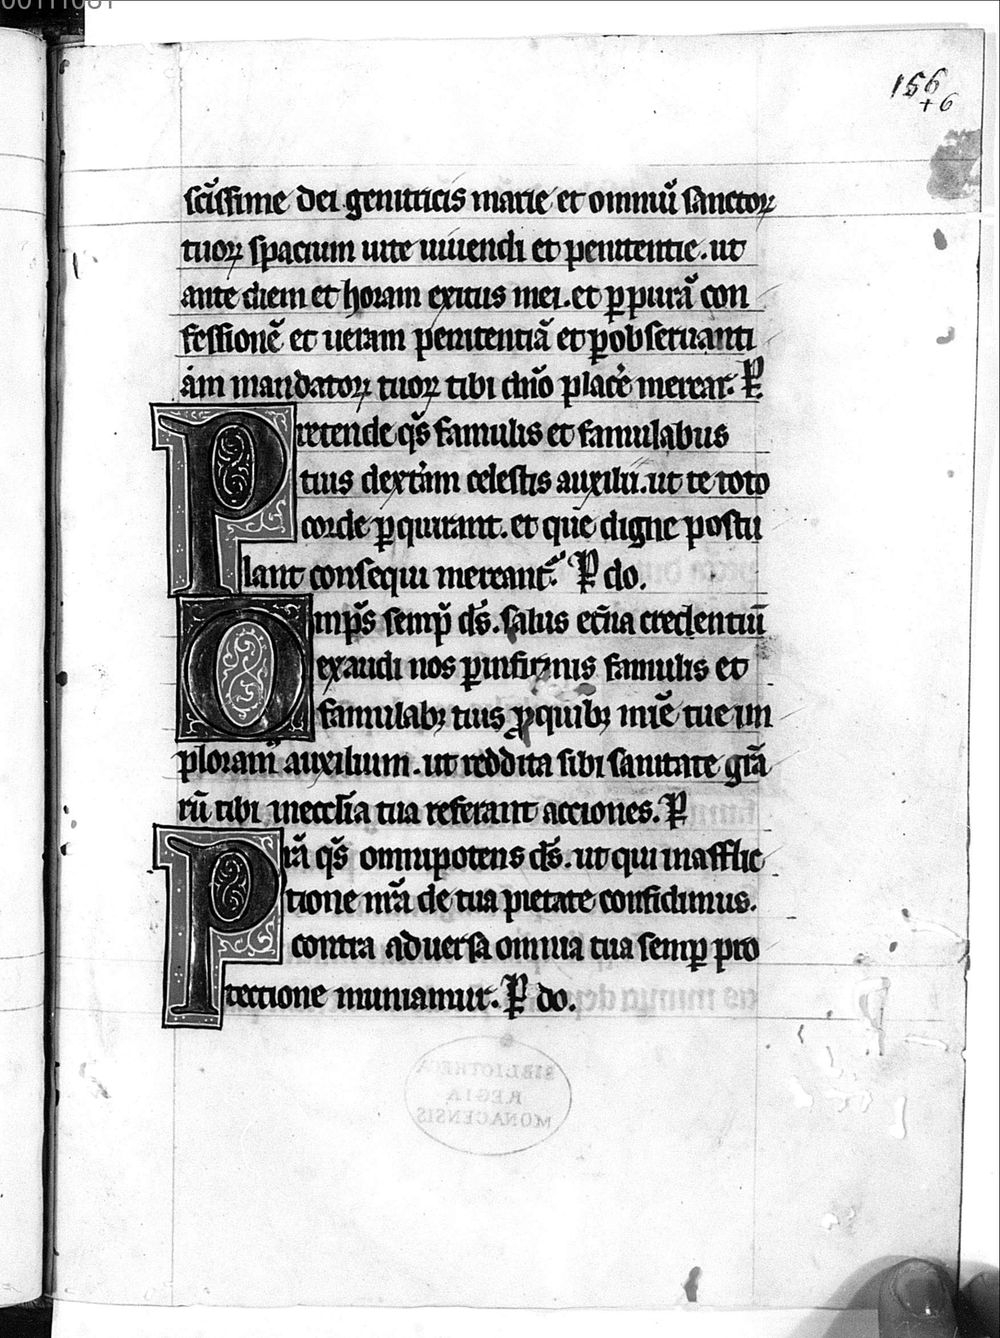 00111081
156
+6
sc̄issime dei genitricis marie et omniū sanctoꝝ
tuoꝝ spacium uite uiuendi et penitentie. ut
ante diem et horam exitus mei. et ꝑ purā con
fessionē et ueram penitentiā et ꝑ obseruanti
am mandatoꝝ tuoꝝ tibi dn̄o placē merear. P̄.
Pretende qs̄ famulis et famulabus
tuis dextram celestis auxilii. ut te toto
corde ꝑquirant. et que digne postu
lant consequi mereant᷑. P̄ do.
Omp̄s semp̄ ds̄. salus et̄na credentiū
exaudi nos ꝑ infirmis famulis et
famulabꝫ tuis ꝓ quibꝫ mīe tue im
ploram᷒ auxilium. ut reddita sibi sanitate grā
rū tibi in ecclīa tua referant acciones. P̄
Prā qs̄ omnipotens ds̄. ut qui in afflic
tione nrā de tua pietate confidimus.
contra aduersa omnia tua semꝑ pro
tectione muniamur. P̄ do.
BIBLIOTHECA
REGIA
MONACENSIS